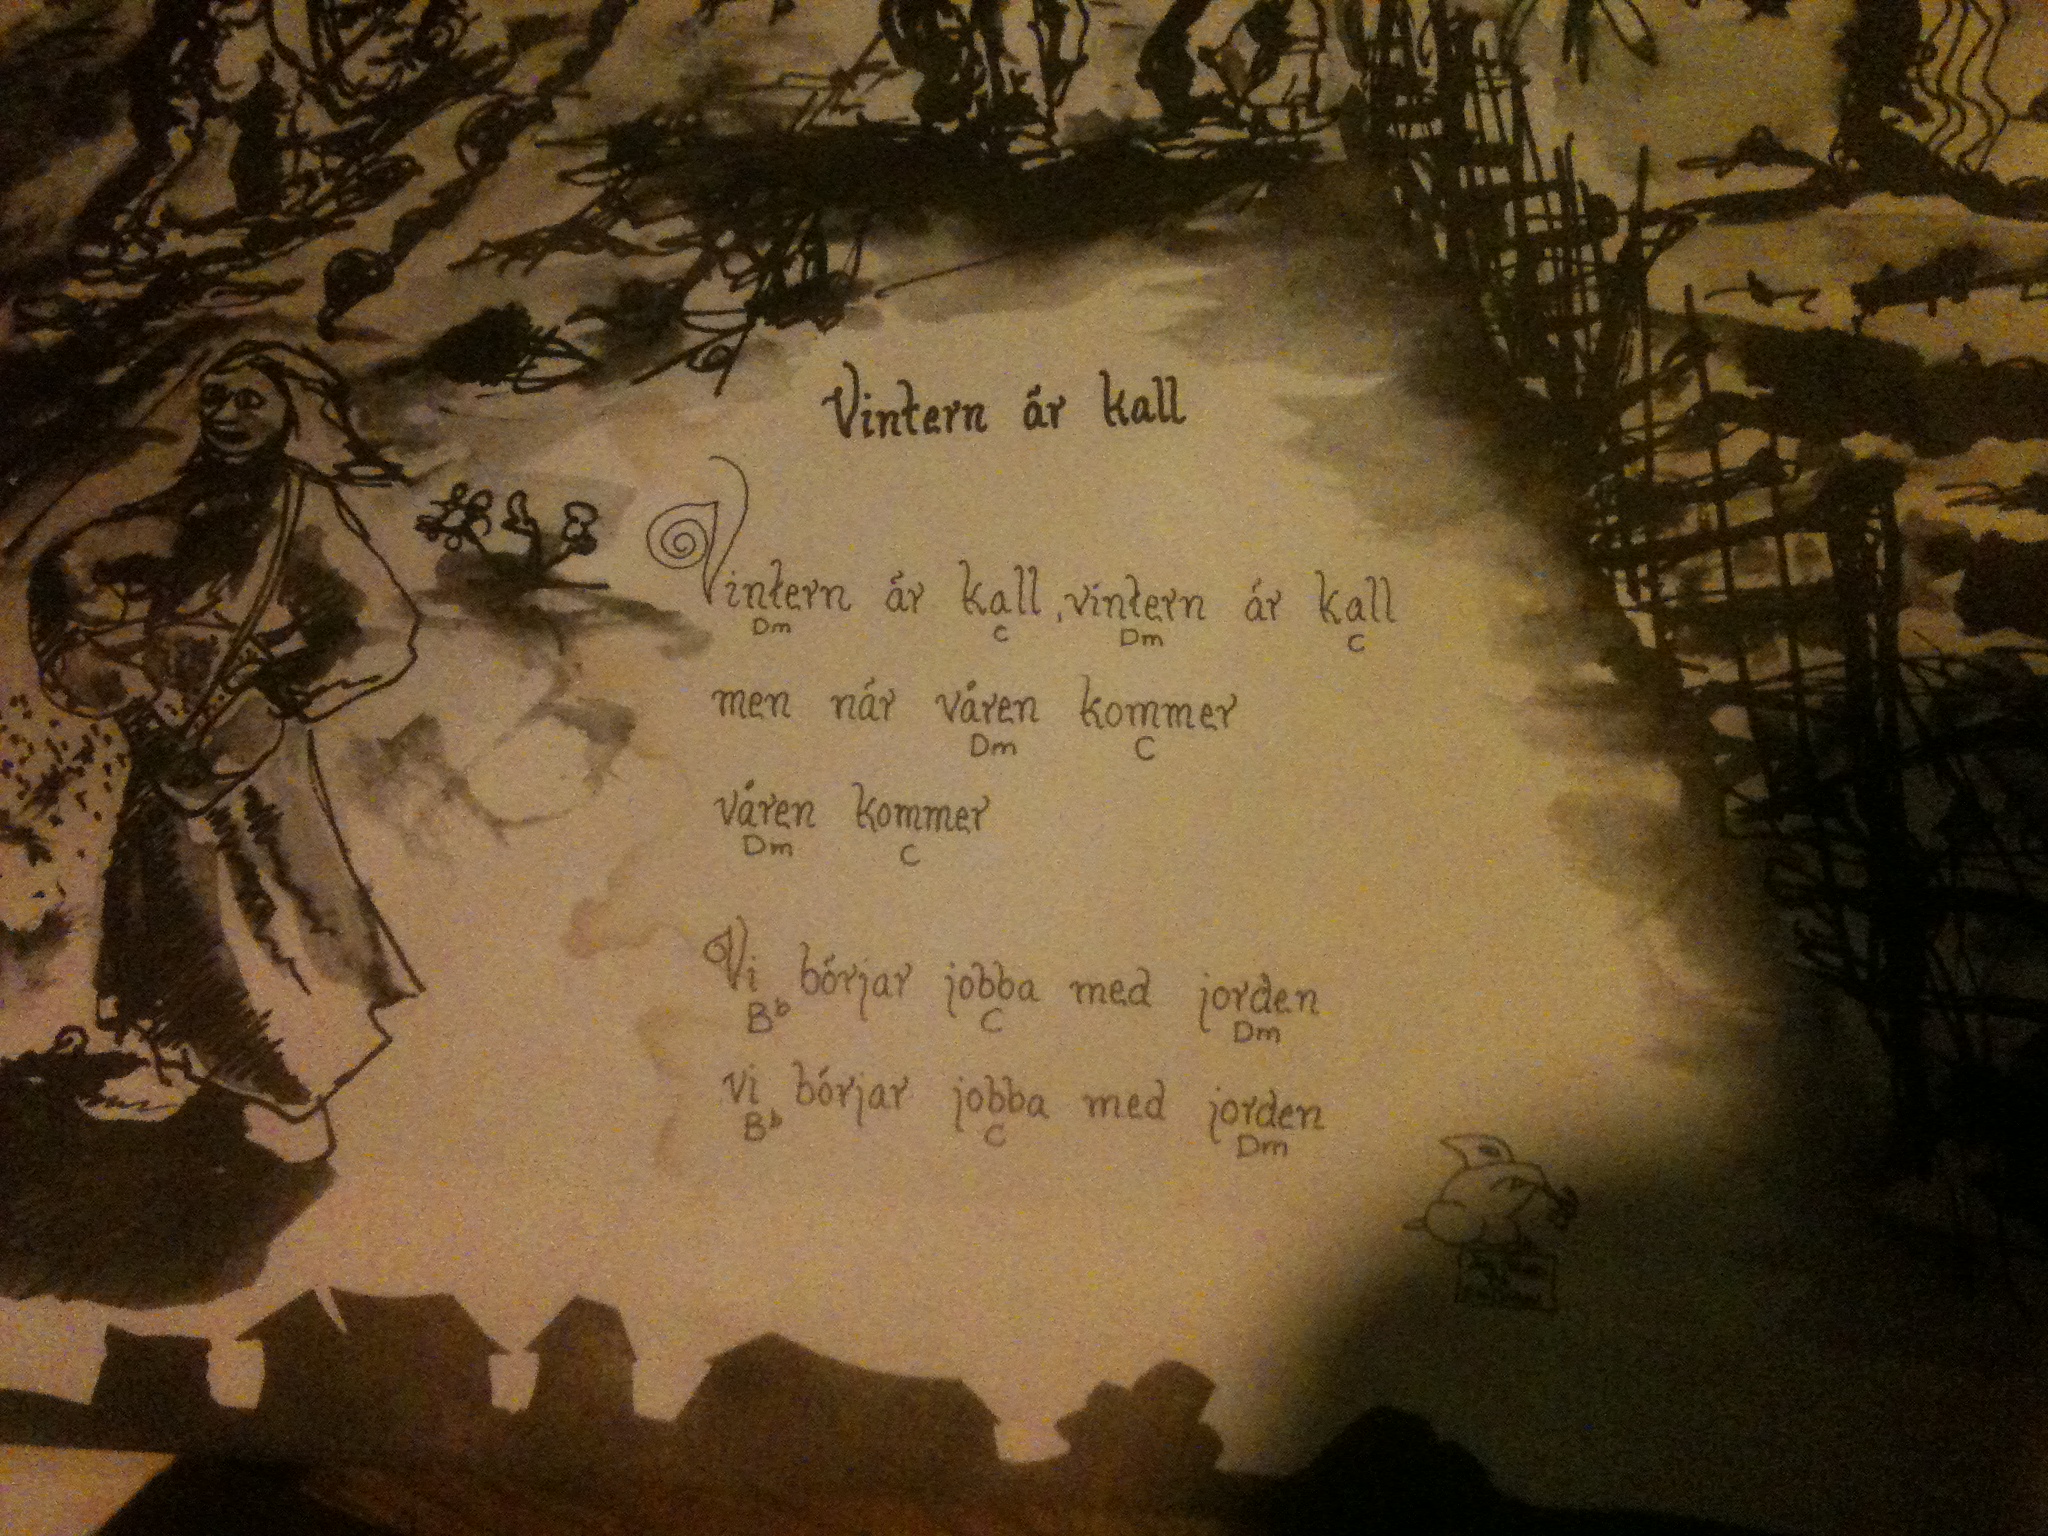 Vintern är kall
Vintern är kall, vintern är kall
Dm C Dm C
men när våren kommer
Dm C
våren kommer
Dm C
Vi börjar jobba med jorden
Bb C Dm
vi börjar jobba med jorden
Bb C Dm